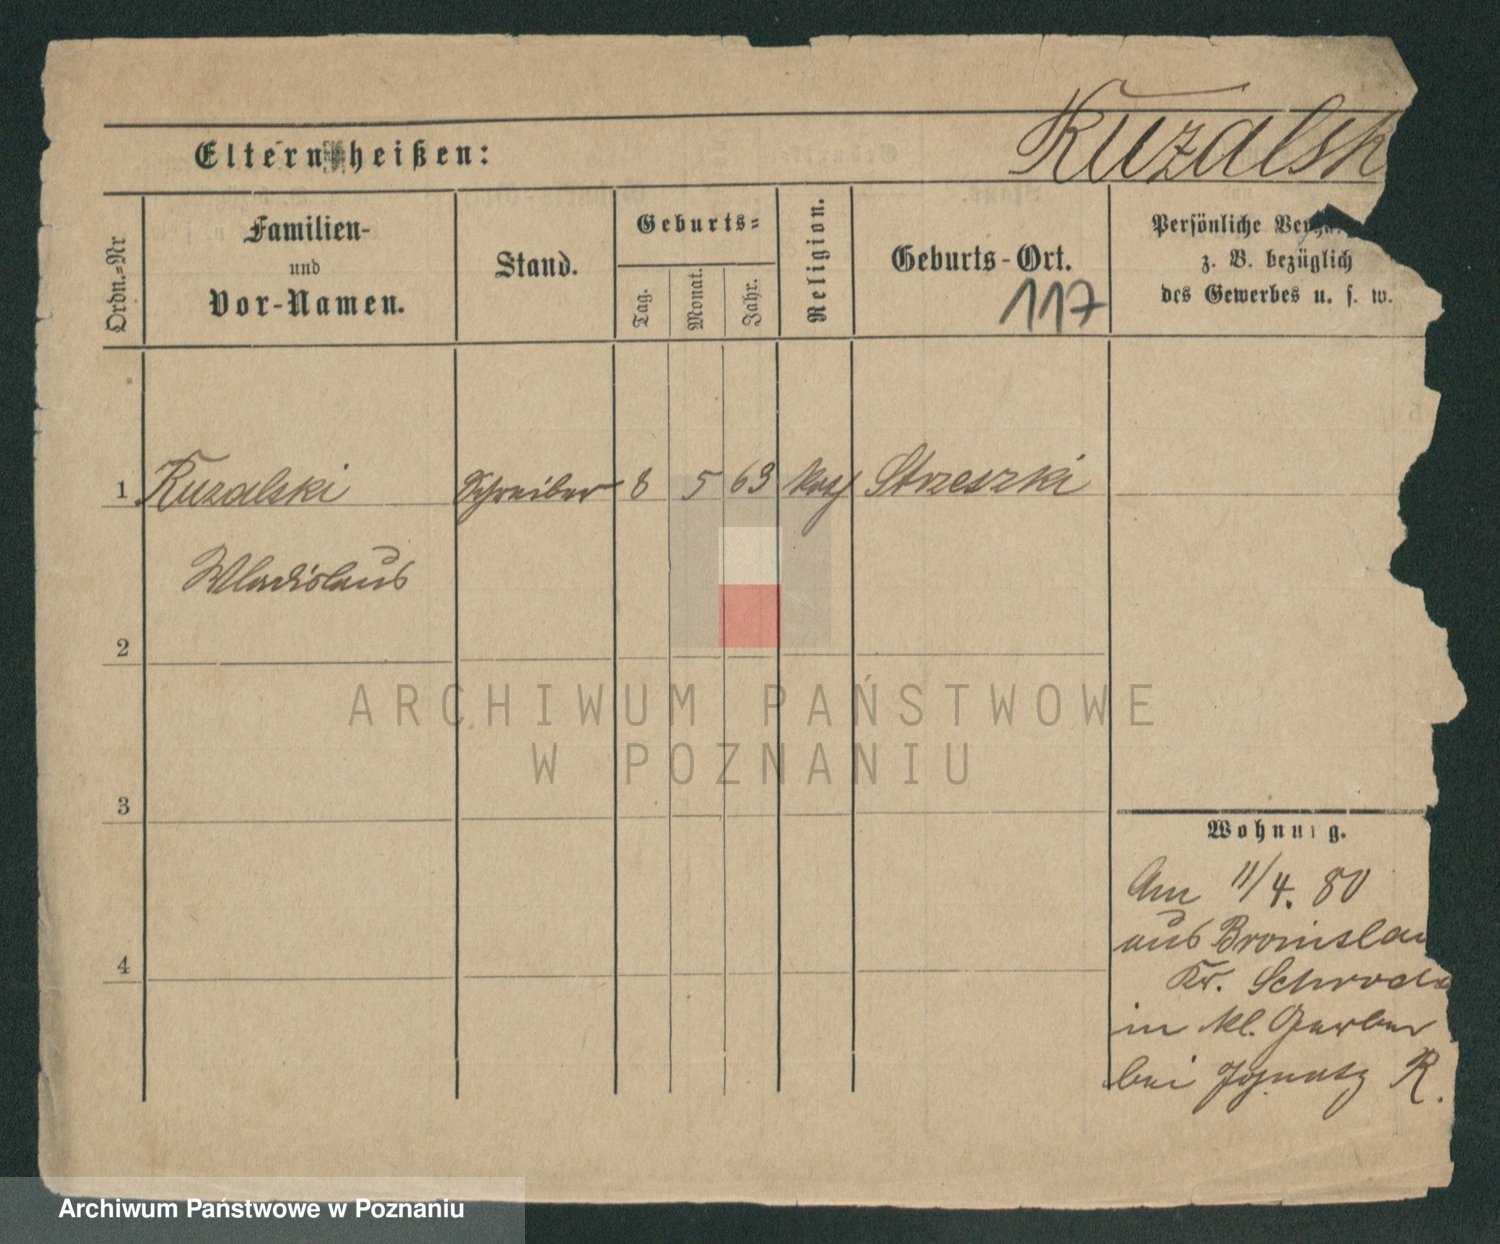 Kuzalsk
Eltern heißen:
Ordn.-Nr
Familien-
und
Vor-Namen.
Stand.
Geburts-
Tag.
Monat.
Jahr.
Religion.
Geburts-Ort.
117
Persönliche
z. B. bezüglich
des Gewerbes u. s. w.
1 Kuzalski Schreiber 8 5 63 kath Strzeszki
Wladislaus
2
3
4
ARCHIWUM PAŃSTWOWE
W POZNANIU
Wohnung.
Am 11/4. 80
aus Bronislaw
Kr. Schroda
in kl. Gerber
bei Ignatz R.
Archiwum Państwowe w Poznaniu